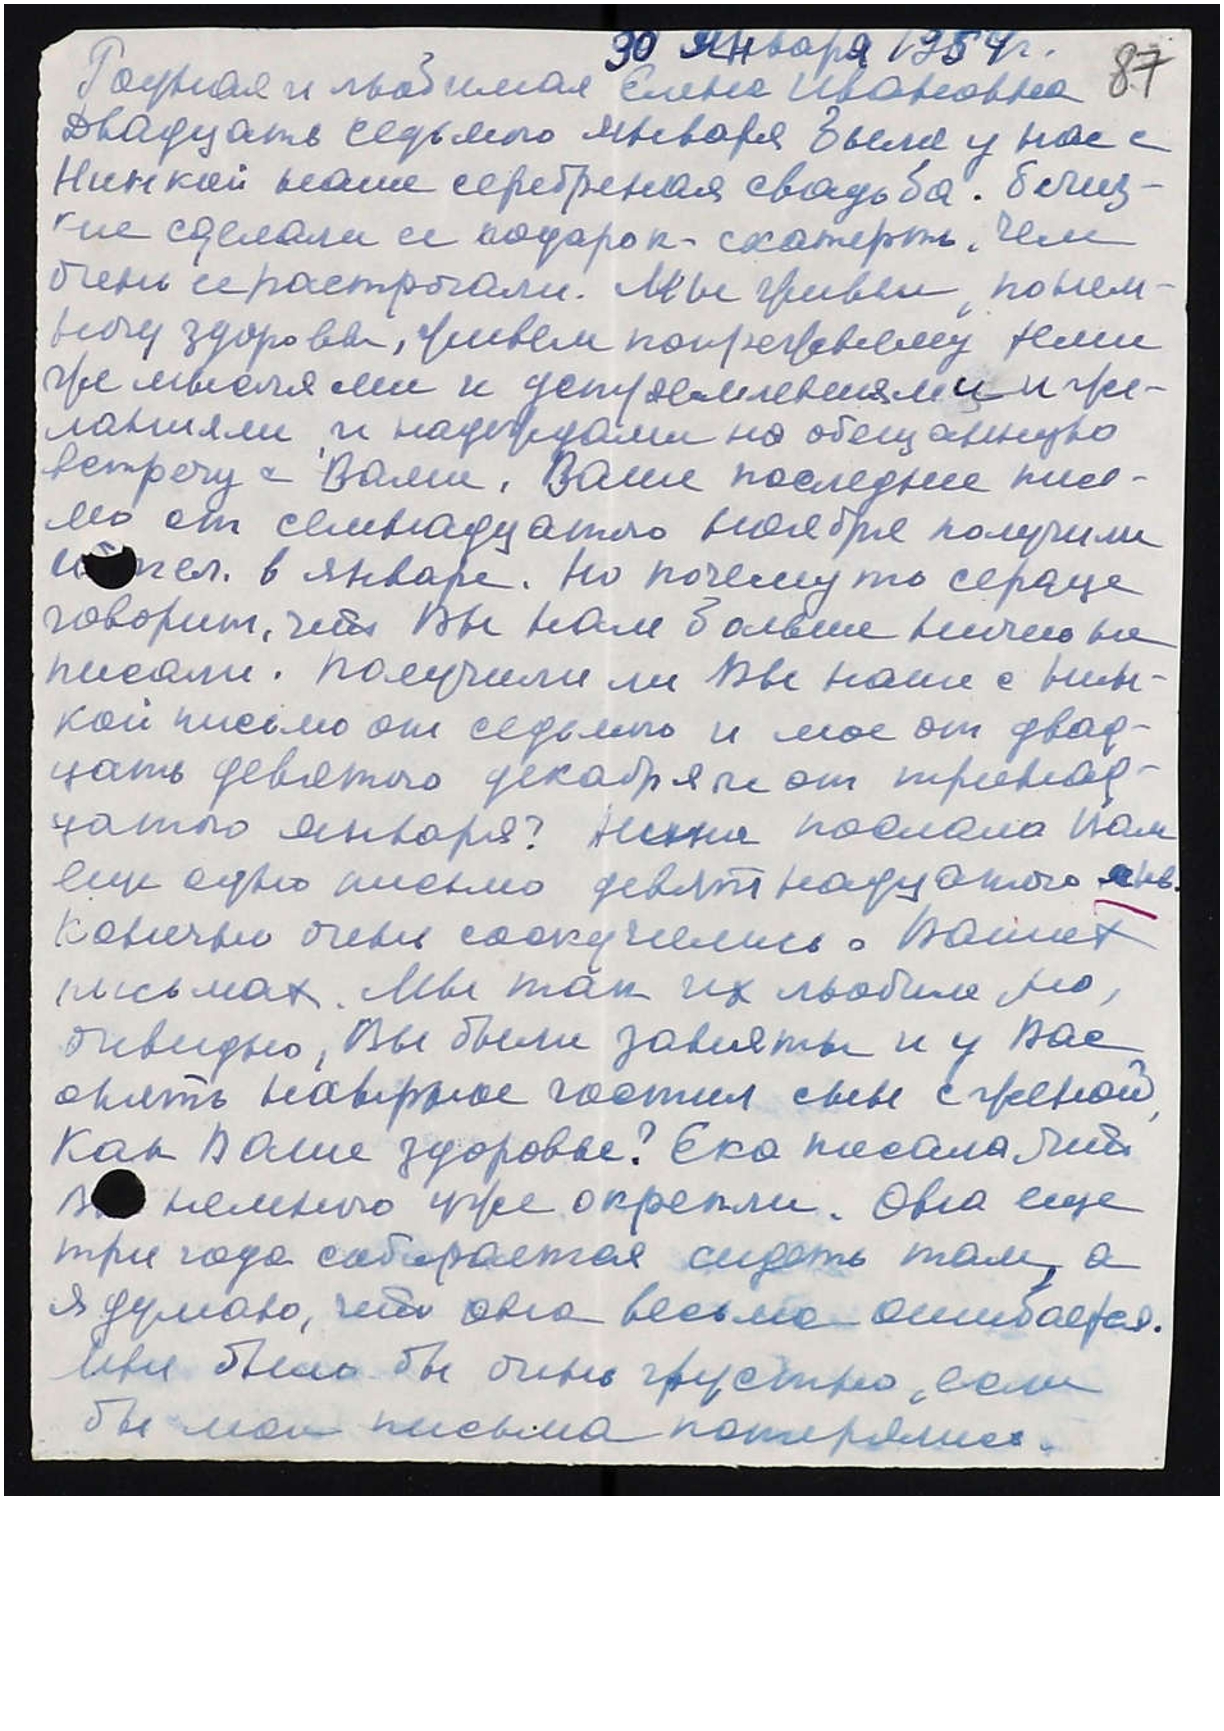 30 Января 1957г.
87
Родная и любимая Елена Ивановна
Двадцать седьмого января была у нас с
Нинкой наша серебреная свадьба. Близ-
кие сделали ей подарок - скатерть. Чем
очень ее растрогали. Мы живы, понем-
ногу здоровы, живем попрежнему теми
же мыслями и устремлениями и же-
ланиями и надеждами на обещанную
встречу с Вами. Ваше последнее пись-
мо от семнадцатого ноября получили
в январе. Но почему то сердце
говорит, что Вы нам больше ничего не
писали. Получили ли Вы наше с Нин-
кой письмо от седьмого и мое от двад-
цать девятого декабря и от тринад-
цатого января? Нинка послала Вам
еще одно письмо девятнадцатого янв.
Конечно очень соскучились о Ваших
письмах. Мы так их любим, но,
очевидно, Вы были заняты и у Вас
опять наверное гостил сын с женой,
Как Ваше здоровье? Ека писала, что
немного уже окрепли. Она еще
три года собирается сидеть там, а
я думаю, что она весьма ошибается.
Мне было бы очень грустно, если
бы мои письма потерялись.